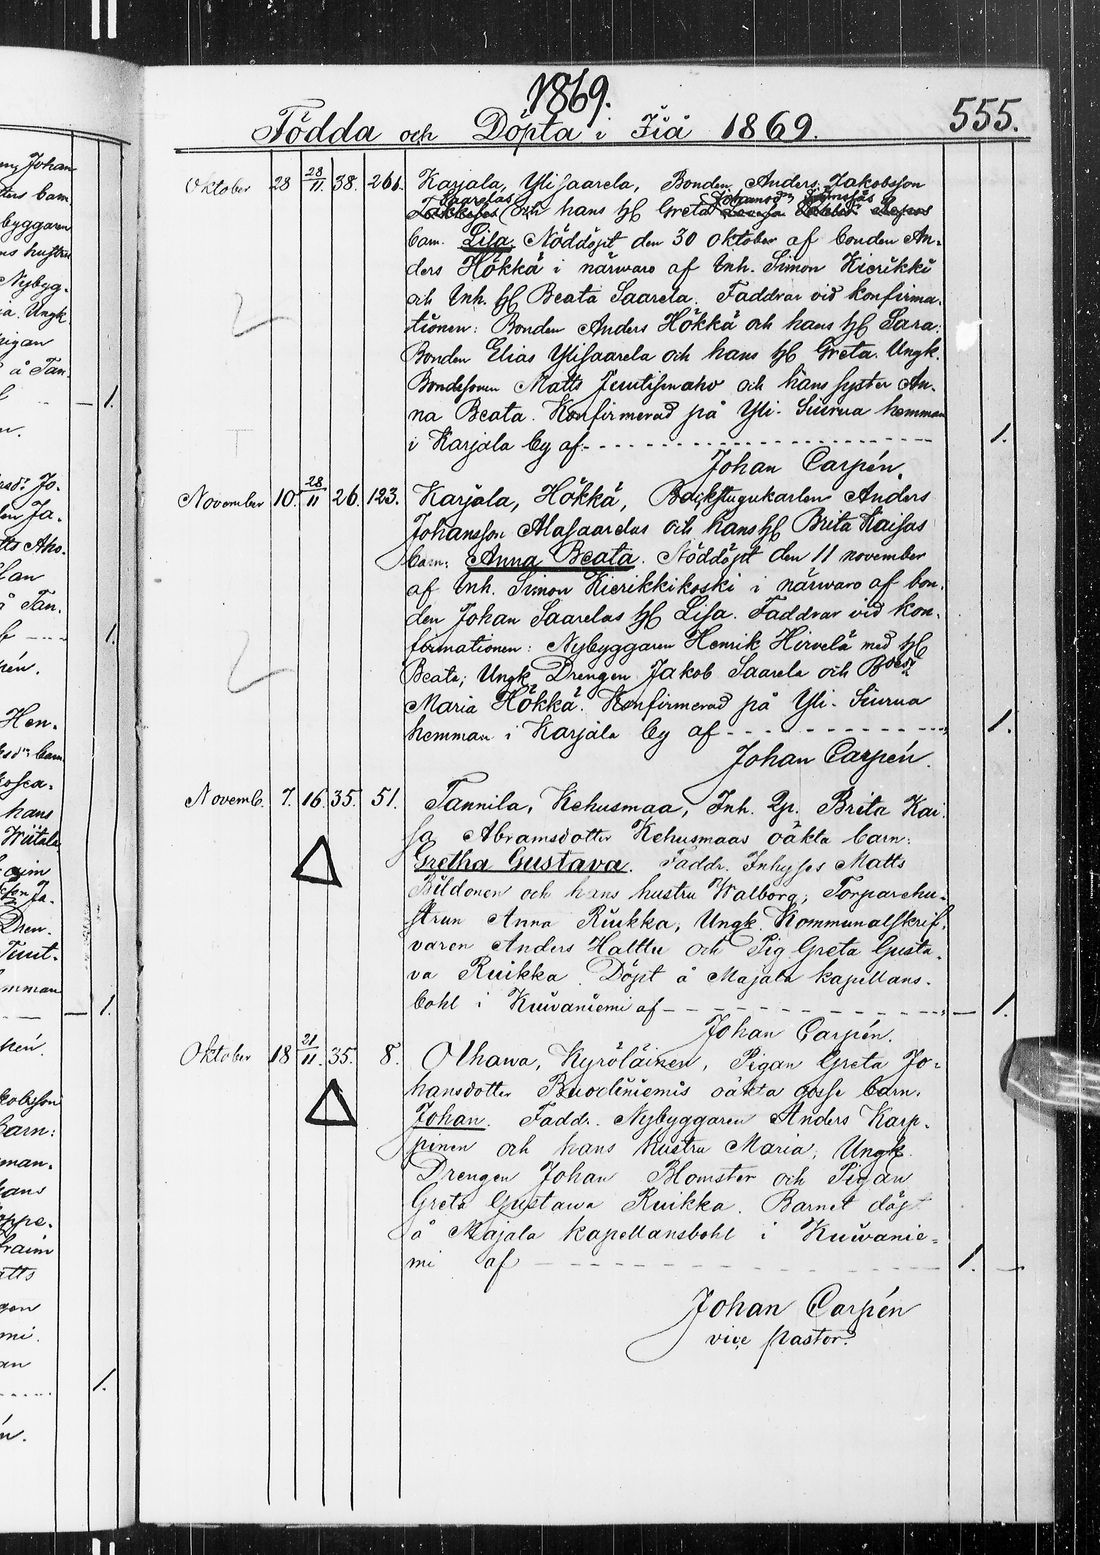 1869.
Födda och Döpta i Iiå 1869. 555.
Oktober 28 28/11 38. 266. Karjala, Ylisaarela, Bonden Anders Jakobsson
Saarelas och hans hℋ Greta Johansdr
barn. Lisa Nöddöpt den 30 oktober af bonden An-
ders Hökkä i närwaro af Inh. Simon Kierikki
och Inh. hℋ Beata Saarela. Faddrar vid konfirma-
tionen: Bonden Anders Hökkä och hans hℋ Sara;
Bonden Elias Ylisaarela och hans hℋ Greta. Ungk.
Bondesonen Matts och hans syster An-
na Beata. Konfirmerad på Yli-Siurua hemman
i Karjala by af 1.
Johan Carpén.
November 10. 28/11 26. 123. Karjala, Hökkä, Backstugukarlen Anders
Johansson Alasaarelas och hans hℋ Brita Kaisas
barn: Anna Beata. Nöddöpt den 11 november
af Inh. Simon Kierikkikoski i närwaro af bon-
den Johan Saarelas hℋ Lisa. Faddrar vid kon-
firmationen: Nybyggaren Henrik Hirvelä med hℋ
Beata; Ungk. Drengen Jakob Saarela och
Maria Hökkä. Konfirmerad på Yli-Siurua
hemman i Karjala by af 1.
Johan Carpén.
Novemb. 7. 16. 35. 51. Tannila, Kehusmaa, Inh. Qp. Brita Kai-
sa Abramsdotter Kehusmaas oäkta barn:
Gretha Gustava. Faddr. Inhyses Matts
Pildonen och hans hustru Walborg; Torparehu-
strun Anna Ruikka, Ungk. Kommunalskrif-
varen Anders Halttu och Pig Greta Gusta-
va Ruikka. Döpt å Majala kapellans-
bohl i Kuivaniemi af 1.
Johan Carpén.
Oktober 18 21/11. 35. 8. Olhawa, Kyröläinen, Pigan Greta Jo-
hansdotter oäkta gosse barn.
Johan. Faddr. Nybyggaren Anders Karp-
pinen och hans hustru Maria; Ungk.
Drengen Johan Blomster och Pigan
Greta Gustawa Ruikka. Barnet döpt
å Majala kapellansbohl i Kuiwanie-
mi af 1.
Johan Carpén
vice pastor.